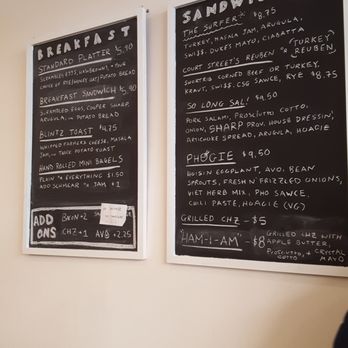 BREAKFAST
STANDARD PLATTER 5.90
SCRAMBLED EGGS, HASHBROWN, YOUR
CHOICE OF BREAKFAST MEAT, POTATO BREAD
BREAKFAST SANDWICH
SCRAMBLED EGGS, COOPER SHARP,
ARUGULA, ON POTATO BREAD
BLINTZ TOAST $4.75
WHIPPED FARMERS CHEESE, MASALA
JAM, THICK POTATO TOAST
HAND ROLLED MINI BAGELS
PLAIN EVERYTHING $1.50
ADD SCHMEAR JAM $1
ADD ONS
BACN +2
CHZ +1 AVO +2.25
SANDWI
THE SURFER $8.75
TURKEY, MASALA JAM, ARUGULA,
SWI$$, DUKES MAYO, CIABATTA
COURT STREET'S REUBEN (TURKEY REUBEN,
SHORTRIB CORNED BEEF OR TURKEY,
KRAUT, SWI$$, CSG SAUCE, RYE $8.75
SO LONG SAL! $9.50
PORK SALAMI, PROSCIUTTO COTTO,
ONION, SHARP PROV, HOUSE DRESSIN'
ARTICHOKE SPREAD, ARUGULA, HOAGIE
PHOGIE $9.50
HOISIN EGGPLANT, AVO, BEAN
SPROUTS, FRESH N' FRIZZLED ONIONS,
VIET HERB MIX, PHO SAWCE,
CHILI PASTE, HOAGIE (VG)
GRILLED CHZ - $5
"HAM-I-AM" - $8 GRILLED CHZ WITH
APPLE BUTTER,
PROSCIUTTO COTTO, CRYSTAL
MAYO